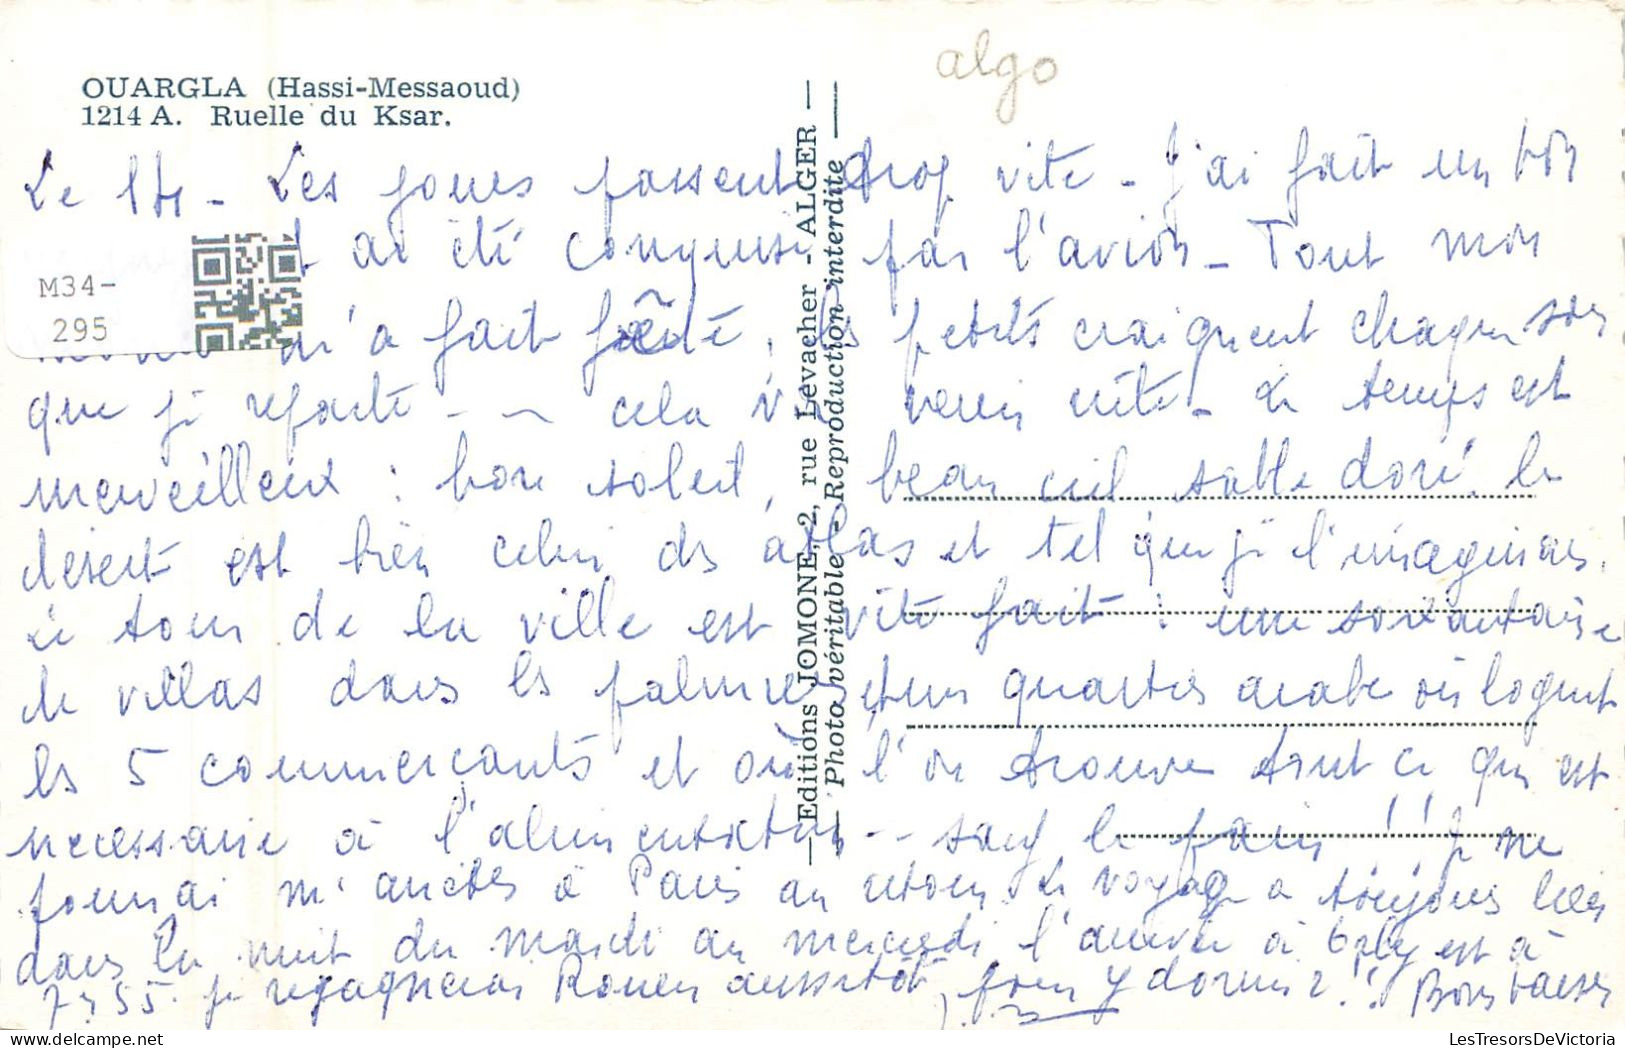 algo
OUARGLA (Hassi-Messaoud)
1214 A. Ruelle du Ksar.
Editions JOMONE, 2, rue Levacher - ALGER
Photo véritable - Reproduction interdite
M34-
295
Le 14 - Les jours passent trop vite - J'ai fait un bon
ai été conquise par l'avion - Tout mon
m'a fait fête, les petits craignent chaque soir
que je reparte - - cela va venir vite - Le temps est
merveilleux : bon soleil, beau ciel sable doré, le
desert est bien celui des atlas et tel que je l'imaginais.
Le tour de la ville est vite fait : une soixantaine
de villas dans les palmiers et un quartier arabe où logent
les 5 commerçants et où l'on trouve tout ce qui est
necessaire à l'alimentation -- sauf le pain !! Je ne
pourrai m'arrêter à Paris au retour. Le voyage a toujours lieu
dans la nuit du mardi au mercredi l'arrivée à Orly est à
7h55. Je regagnerai Rouen aussitôt, pour y dormir !! Bons baisers
LesTresorsDeVictoria